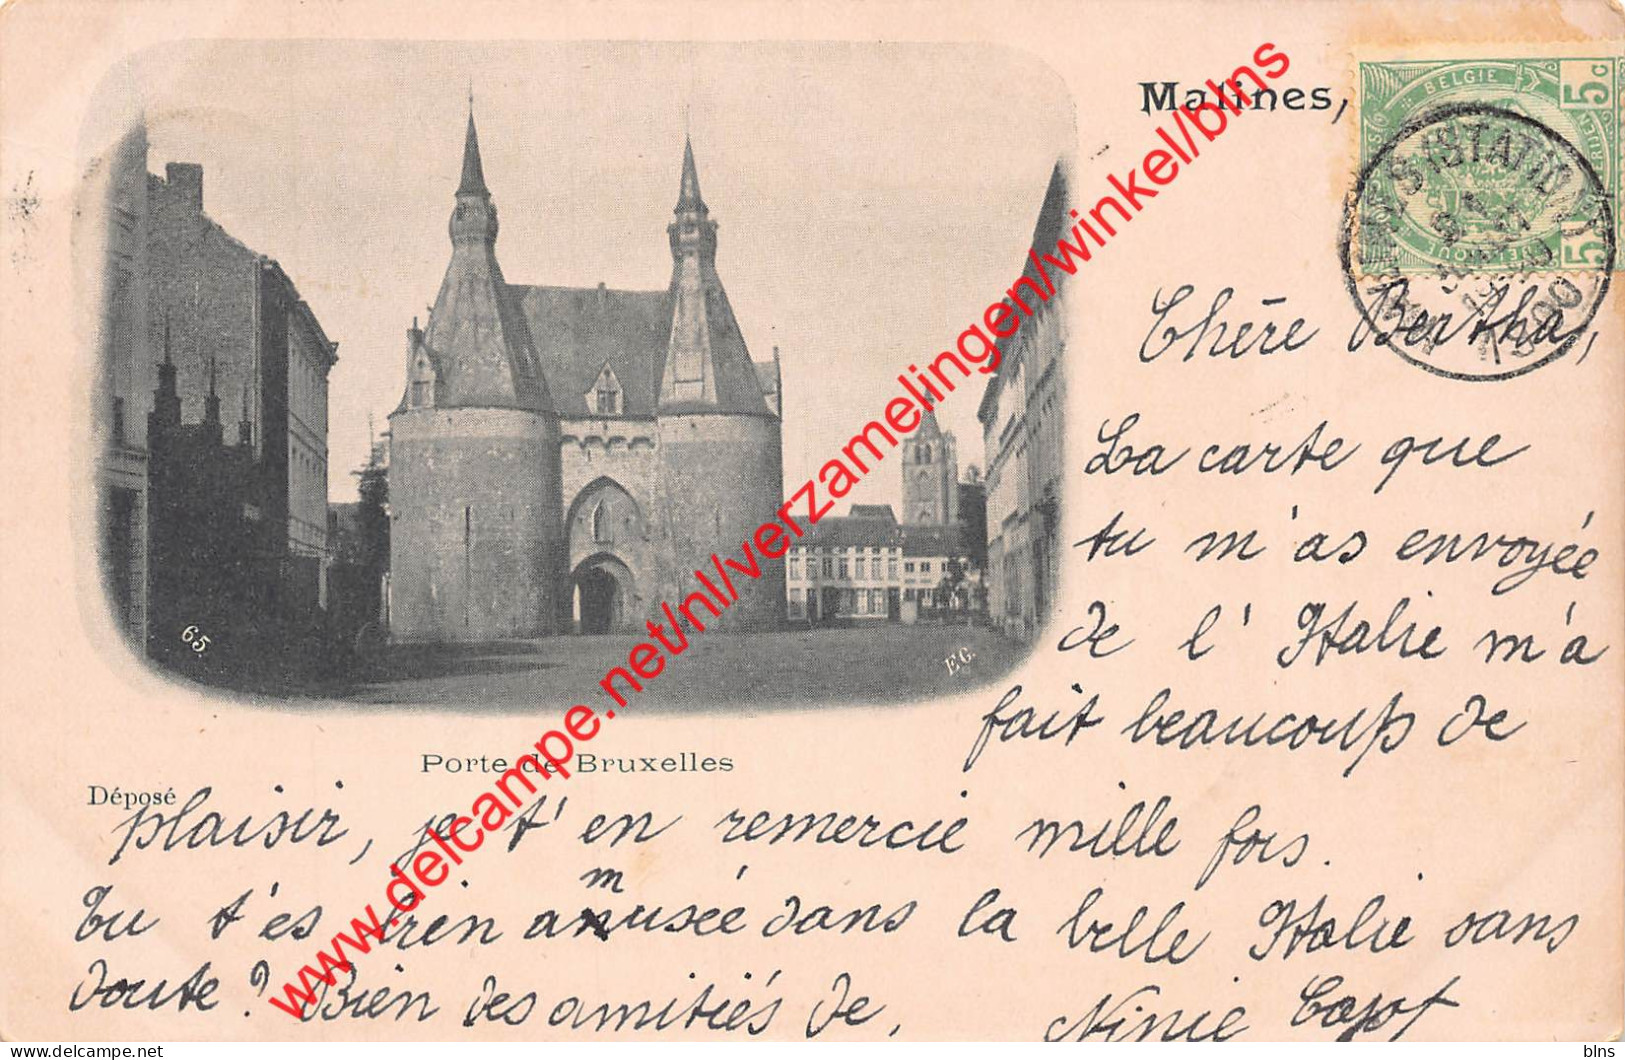 Malines,
BELGIE
5c
5
MALINES (STATION)
1900
Chère Bertha,
La carte que
tu m'as envoyée
de l'Italie m'a
fait beaucoup de
65.
E.G.
Porte de Bruxelles
Déposé
plaisir, je t'en remercie mille fois.
m
Tu t'es bien anusée dans la belle Italie sans
doute? Bien des amitiés de,
Ninie
www.delcampe.net/nl/nl/verzamelingen/winkel/blns
blns